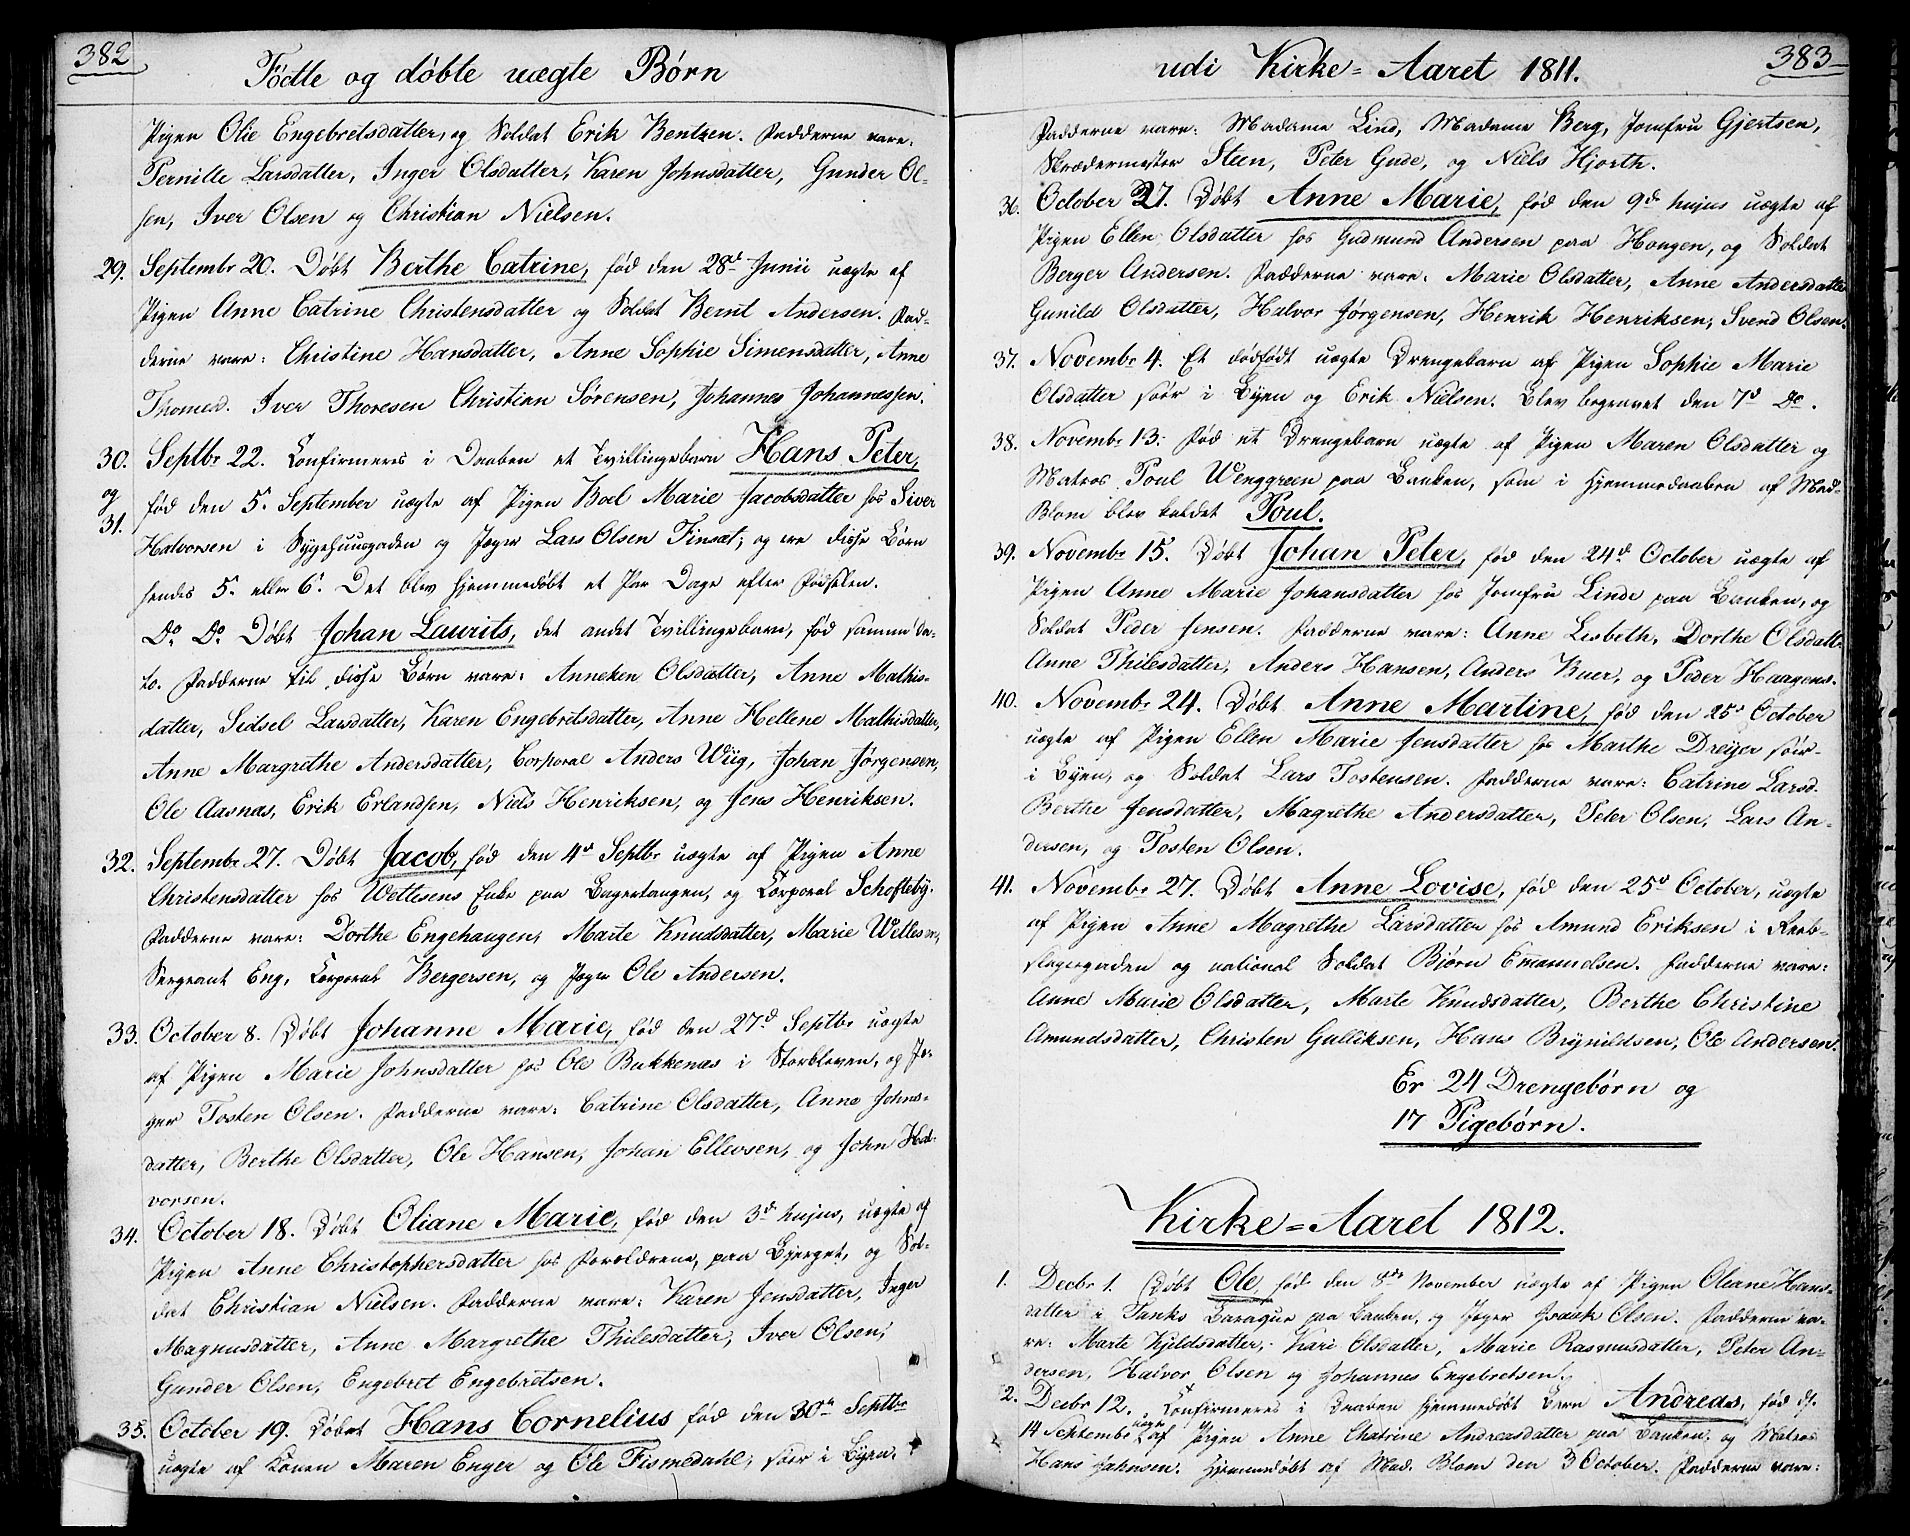 382
Födte og döbte uægte Børn
Pigen Olie Engebretsdatter, og Soldat Erik Bentzen. Fadderne vare:
Pernille Larsdatter, Inger Olsdatter, Karen Johnsdatter, Gunder Ol-
sen, Iver Olsen og Christian Nielsen.
29. Septembr 20. Döbt Berthe Catrine, fød den 28d Junii uægte af
Pigen Anne Catrine Christensdatter og Soldat Bernt Andersen. Fad-
derne vare: Christine Hansdatter, Anne Sophie Simensdatter, Anne
Thomesd. Iver Thoresen Christian Sörensen, Johannes Johannessen.
30. Septbr 22. Confirmeres i Daaben et Tvillingebarn Hans Peter,
og
31.
fød den 5. September uægte af Pigen Boel Marie Jacobsdatter hos Siver
Halvorsen i Sygehuusgaden og Jæger Lars Olsen Finsæt; og ere disse Børn
hendes 5. eller 6. Det blev hjemmedøbt et Par Dage efter Fødselen.
Do Do Döbt Johan Laurits, det andet Tvillingebarn, fød samme Da-
to. Fadderne til disse Børn vare: Anneken Olsdatter, Anne Mathis-
datter, Sidsel Larsdatter, Karen Engebretsdatter, Anne Hellene Mathisdatter,
Anne Margrethe Andersdatter, Corporal Anders Wiig, Johan Jörgensen,
Ole Aasnas, Erik Erlandsen, Niels Henriksen, og Jens Henriksen.
32. Septembr 27. Döbt Jacob, fød den 4d Septbr uægte af Pigen Anne
Christensdatter hos Wettesens Enke paa Bagertangen, og Corporal Schofteby.
Fadderne vare: Dorthe Engehaugen, Marte Knudsdatter, Marie Wettesen,
Sergeant Eng, Corporal Bergersen, og Jæger Ole Andersen.
33. October 8. Döbt Johanne Marie, fød den 27d Septbr uægte
af Pigen Marie Johnsdatter hos Ole Bukkenas i Storbloven, og Jæ-
ger Tosten Olsen. Fadderne vare: Catrine Olsdatter, Anne Johns-
datter, Berthe Olsdatter, Ole Hansen, Johan Ellevsen, og John Hal-
vorsen.
34. October 18. Döbt Oliane Marie, fød den 3d hujus, uægte af
Pigen Anne Christophersdatter hos Forældrene, paa Bjerget, og Sol-
dat Christian Nielsen. Fadderne vare: Karen Jensdatter, Inger
Magnusdatter, Anne Margrethe Thilesdatter, Iver Olsen,
Gunder Olsen, Engebret Engebretsen.
35. October 19. Döbt Hans Cornelius fød den 30te Septbr
uægte af Konen Maren Enger og Ole Fismedahl, hör i Byen.
383
udi Kirke=Aaret 1811.
Fadderne vare: Madame Lind, Madame Berg, Jomfru Gjertsen,
Skrædermester Steen, Peter Gude, og Niels Hjorth.
36. October 27. Döbt Anne Marie, fød den 9de hujus uægte af
Pigen Ellen Olsdatter hos Gudmund Andersen paa Haugen, og Soldat
Berger Andersen. Fadderne vare: Marie Olsdatter, Anne Andersdatter
Gunild Olsdatter, Halvor Jörgensen, Henrik Henriksen, Svend Olsen.
37. Novembr 4. Et dödfødt uægte Drengebarn af Pigen Sophie Marie
Olsdatter hör i Byen og Erik Nielsen. Blev begravet den 7d Do.
38. Novembr 13. Fød et Drengebarn uægte af Pigen Maren Olsdatter og
Matros Poul Wenggreen paa Banken, som i Hjemmedaaben af Mad.
Blom blev kaldet Poul.
39. Novembr 15. Döbt Johan Peter, fød den 24d October uægte af
Pigen Anne Marie Johansdatter hos Jomfru Linde paa Banken, og
Soldat Peder Jensen. Fadderne vare: Anne Lisbeth, Dorthe Olsdatt.
Anne Thilesdatter, Anders Hansen, Anders Buer, og Peder Haagens.
40. Novembr 24. Döbt Anne Martine, fød den 25d October
uægte af Pigen Ellen Marie Jensdatter hos Marthe Dreyer hör
i Byen, og Soldat Lars Tostensen. Fadderne vare: Catrine Larsd.
Berthe Jensdatter, Magrethe Andersdatter, Peter Olsen, Lars An-
dersen, og Tosten Olsen.
41. Novembr 27. Döbt Anne Lovise, fød den 25d October, uægte
af Pigen Anne Magrethe Larsdatter hos Amund Eriksen i Reeb-
slagergaden og national Soldat Bjørn Emanuelsen. Fadderne vare:
Anne Marie Olsdatter, Marte Knudsdatter, Berthe Christine
Amundsdatter, Christen Gulliksen, Hans Brynildsen, Ole Andersen.
Er 24 Drengebørn og
17 Pigebørn.
Kirke=Aaret 1812.
1. Decbr 1. Döbt Ole, fød den 8de November uægte af Pigen Oleane Hans-
datter i Tanks Baraque paa Banken, og Jæger Isaak Olsen. Fadderne va-
re: Marte Kjeldsdatter, Kari Olsdatter, Marie Rasmusdatter, Peter An-
dersen, Halvor Olsen og Johannes Engebretsen.
2. Decbr 12. Confirmeres i Daaben hjemmedøbt Barn Andreas, fød d.
14 Septembr uægte af Pigen Anne Chatrine Andreasdatter paa Banken, og Matros
Hans Jahnsen. Hjemmedøbt af Mad. Blom den 3 October. Fadderne vare: